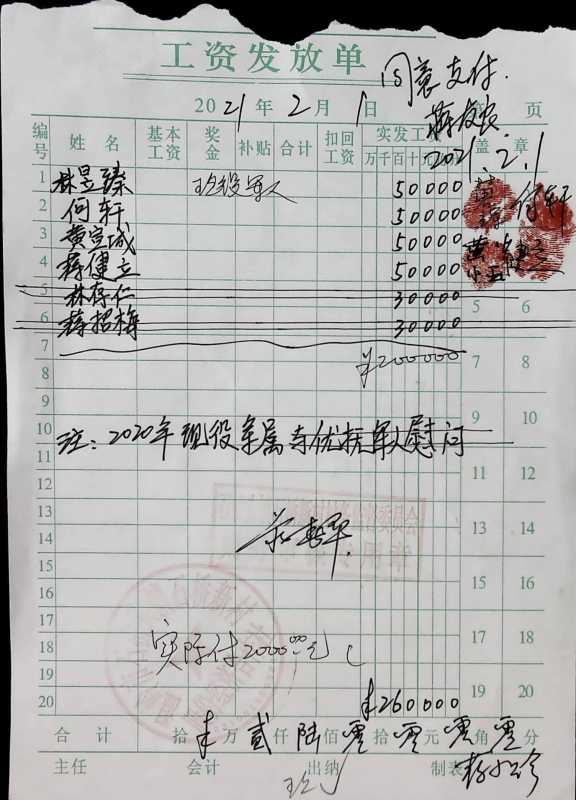 工资发放单
同意支付.
2021年2月1日 第 页
2021.2.1
编号 姓名 基本工资 奖金 补贴 合计 扣回工资 实发工资 盖章
万千百十
1 林昱臻 现役军人 50000
2 何轩 50000 何轩
3 黄宣城 50000
4 蒋健立 50000
5 林存仁 30000 5 6
6 蒋招梅 30000
7 ¥200000 7 8
8
9 9 10
10 注:2020年现役军属与优抚军人慰问
11 11 12
12
13 13 14
14
15 15 16
16
17 17 18
18 实际付2000.00元
19 19 20
20 ¥260000
合计 拾¥万贰仟陆佰零拾零元零角零分
主任 会计 出纳 制表